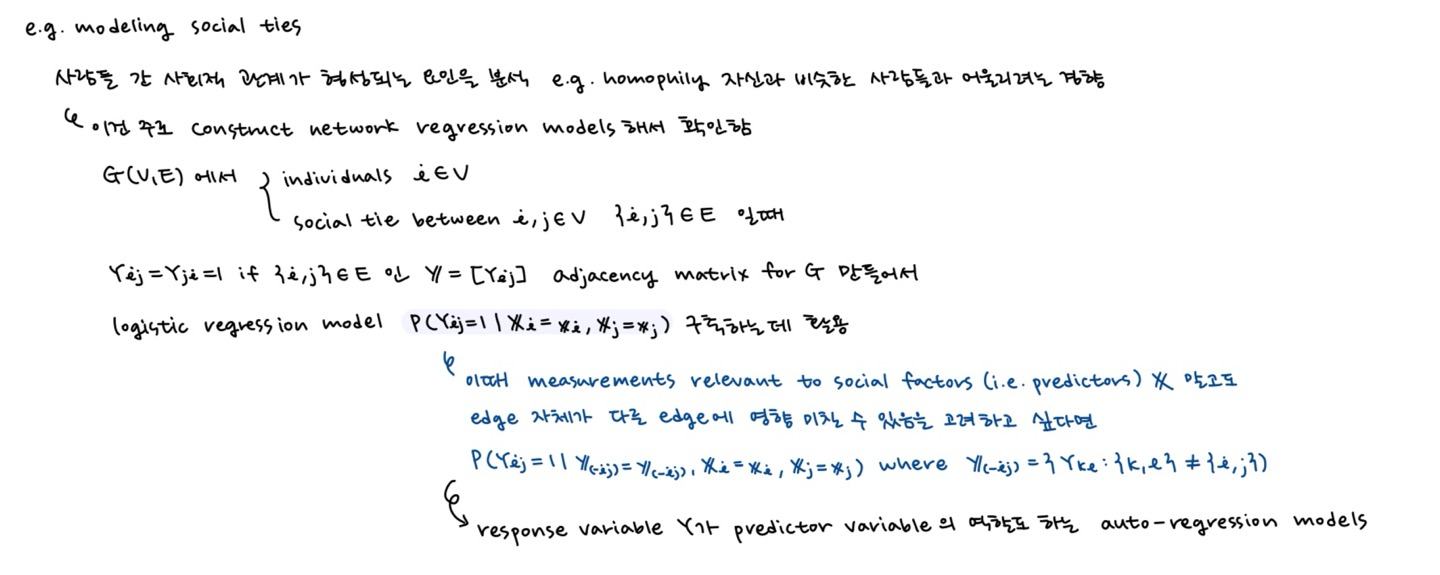 e.g. modeling social ties
사람들 간 사회적 관계가 형성되는 요인을 분석 e.g. homophily 자신과 비슷한 사람들과 어울리려는 경향
이건 주로 construct network regression models 해서 확인함
G(V,E) 에서 { individuals i∈V
social tie between i,j∈V {i,j}∈E 일때
Yij=Yji=1 if {i,j}∈E 인 Y = [Yij] adjacency matrix for G 만들어서
logistic regression model P(Yij=1 | Xi=xi, Xj=xj) 구축하는데 활용
이때 measurements relevant to social factors (i.e. predictors) X 말고도
edge 자체가 다른 edge에 영향 미칠 수 있음을 고려하고 싶다면
P(Yij=1 | Y(-ij)=y(-ij), Xi=xi, Xj=xj) where Y(-ij) = {Ykl : {k,l} ≠ {i,j}}
response variable Y가 predictor variable의 역할도 하는 auto-regression models